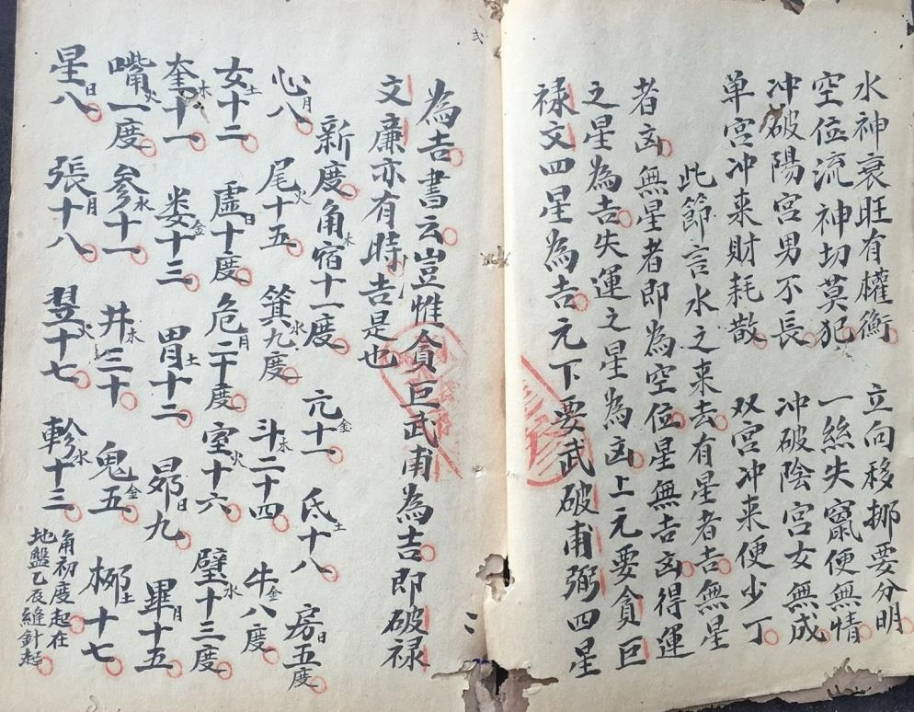 水神衰旺有權衡　立向移挪要分明
空位流神切莫犯　一絲失竄便無情
冲破陽宮男不長　冲破陰宮女無成
单宮冲来財耗散　双宮冲来便少丁
此節言水之来去有星者吉無星
者凶無星者即為空位星無吉凶得運
之星為吉失運之星為凶上元要貪巨
禄文四星為吉元下要武破甫弼四星
為吉書云豈惟貪巨武甫為吉即破禄
文廉亦有時吉是也
新度角木宿十一度　亢金十一　氐土十八　房日五度
心月八　尾火十五　箕水九度　斗木二十四　牛金八度
女土十二　虛日十度　危月二十度　室火十六　璧水十三度
奎木十一　娄金十三　胃土十二　昴日九　畢月十五
嘴火一度　参水十一　井木三十　鬼金五　柳土十七
星日八　張月十八　翌火十七　軫水十三　角初度起在
地盤乙辰縫針起